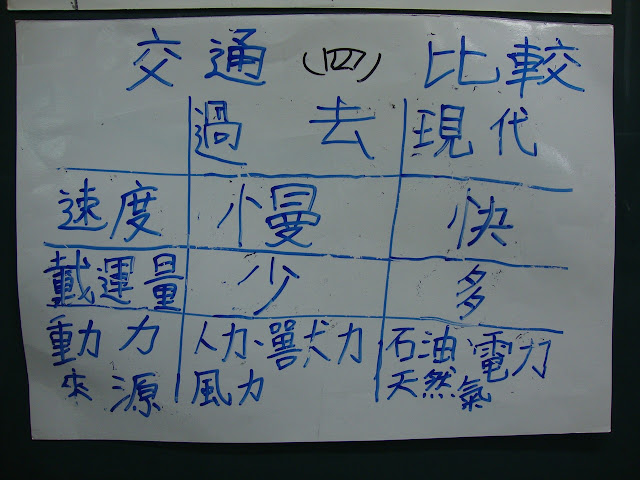 交通(四) 比較
過去 現代
速度 慢 快
戴運量 少 多
動力 人力、獸力 石油、電力
來源 風力 天然氣